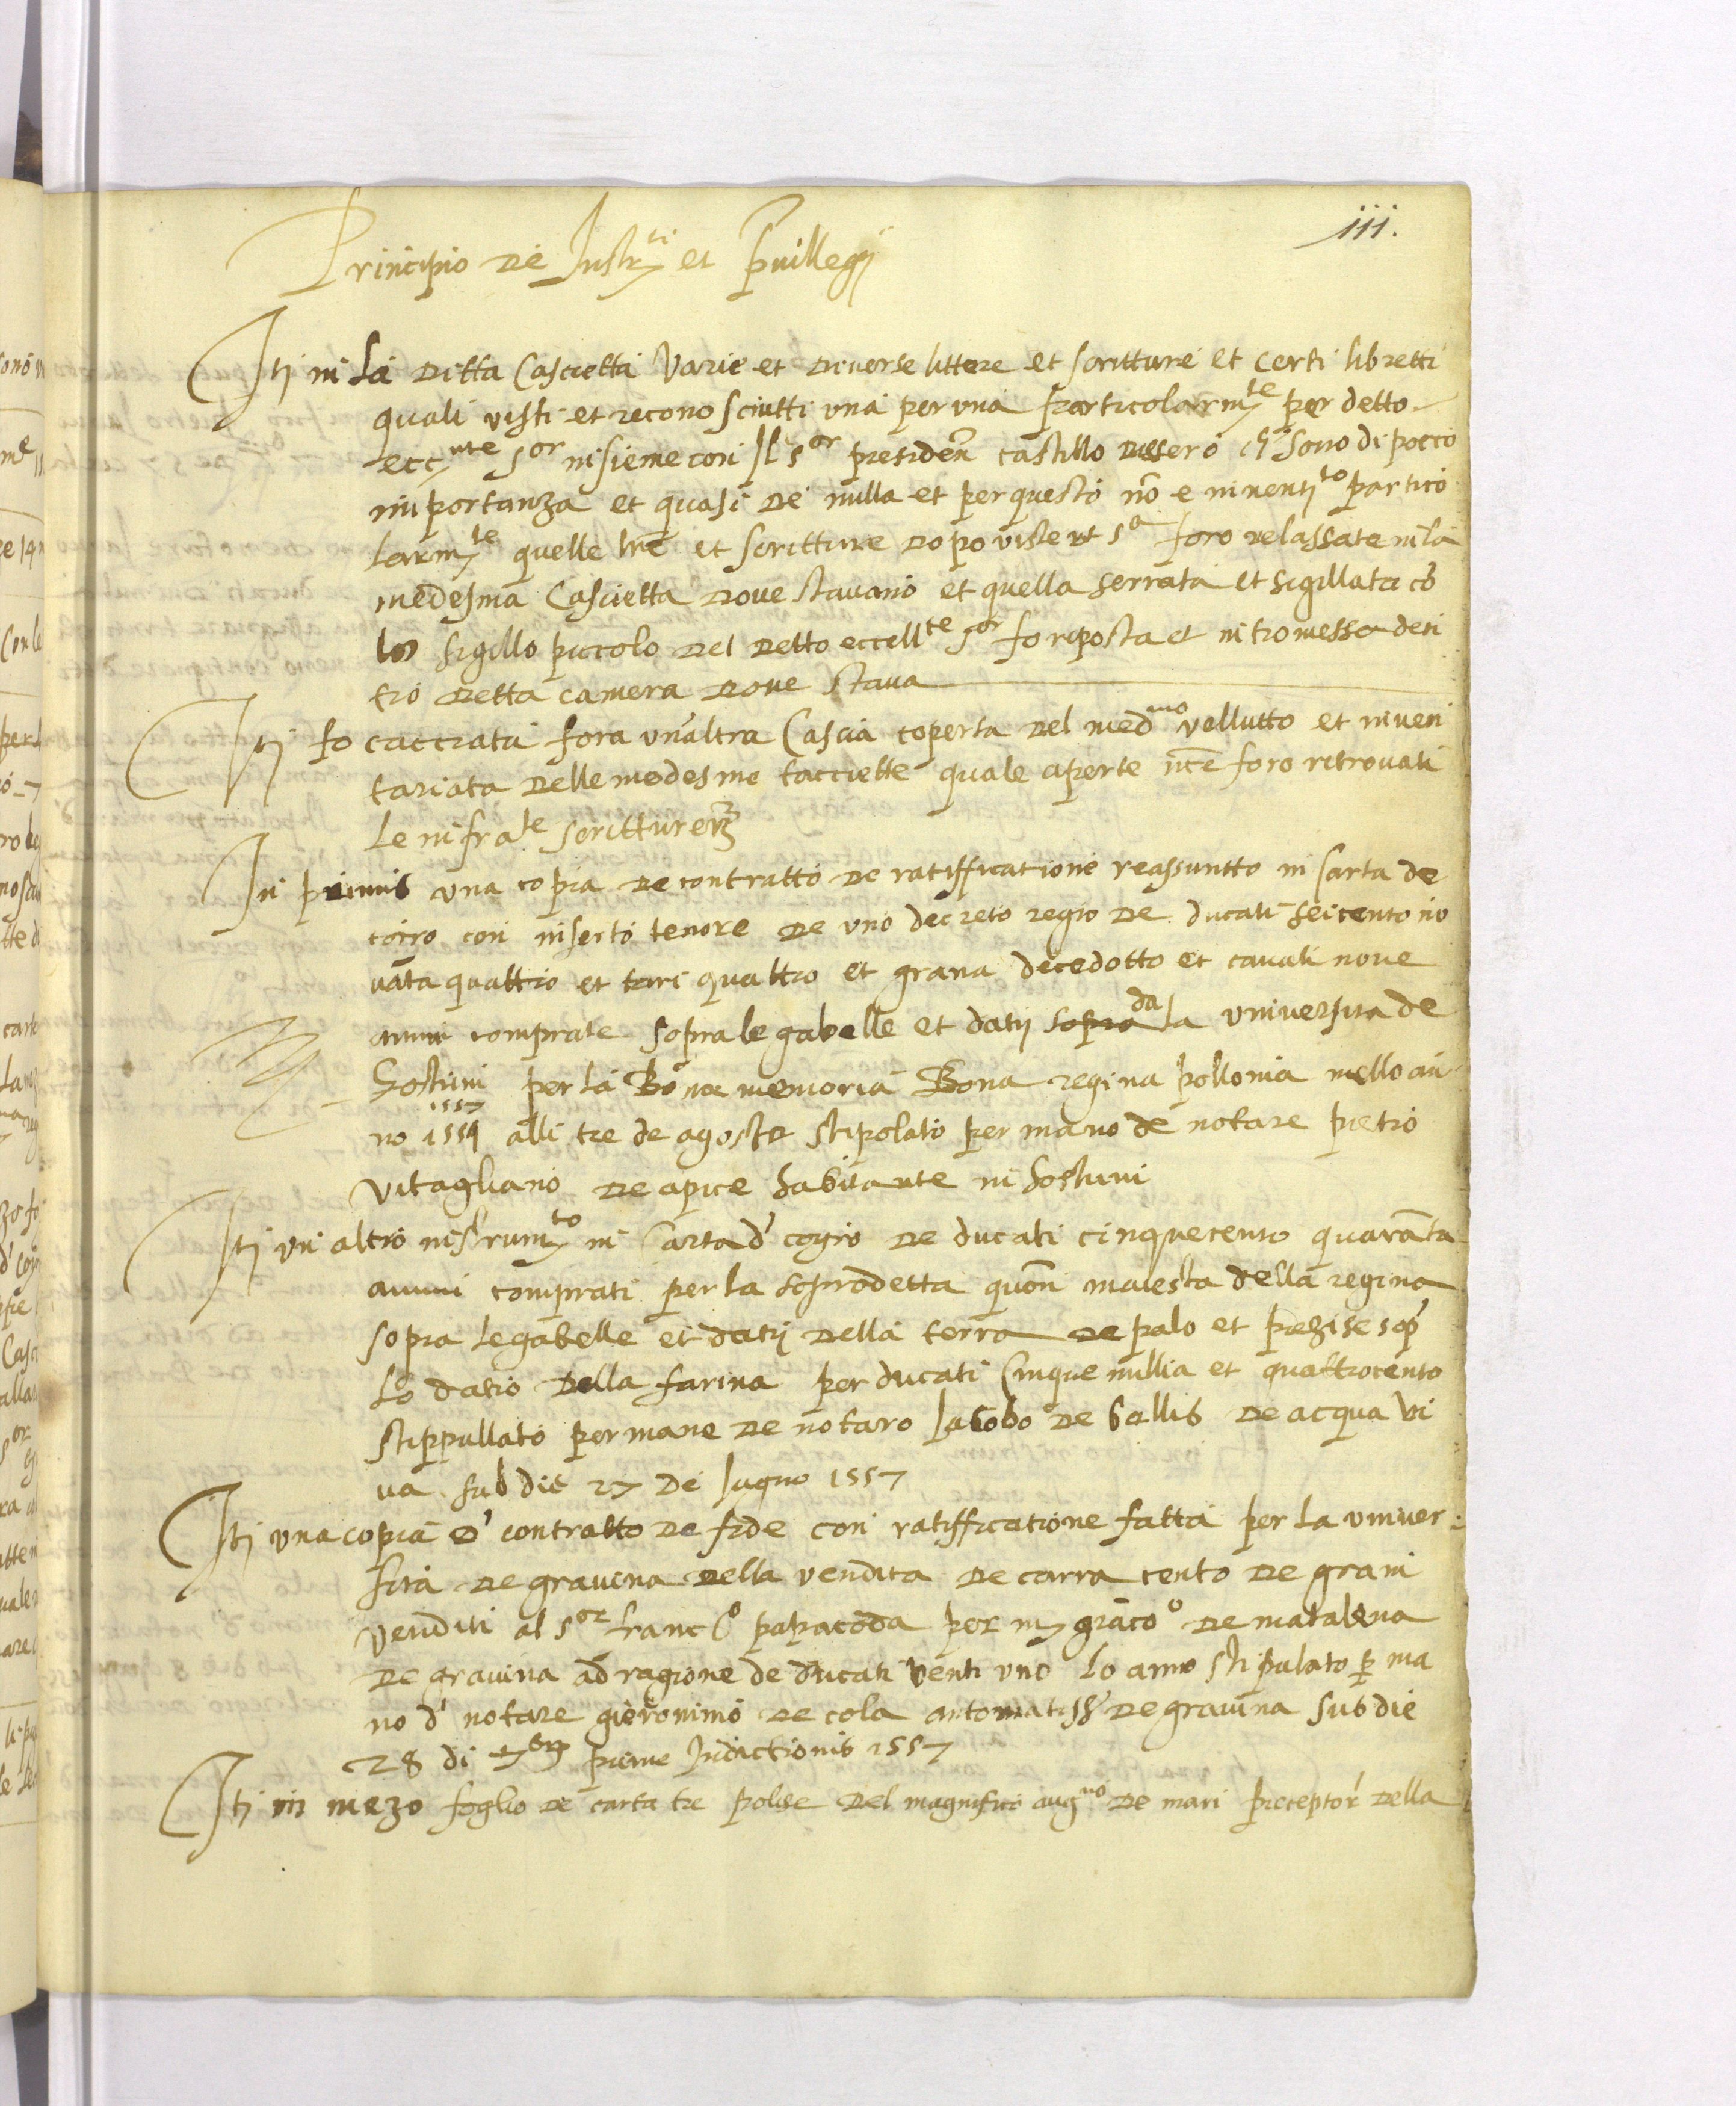 iii.
Principio de Instr.ti et priuilegij
Itj in la ditta Cascietta Varie et diuerse littere et scritture et certi libretti
quali visti et reconosciutti una per una particolarm.te per detto
ecc.nte S.or insieme con Il s.or presiden castillo dissero ch sono di poco
importanza et quasi de nulla et per questo nō e inuenti.to partico
larm.te quelle lrē et scritture dopo viste ut s.a foro relassate in la
medesma Cascietta doue stauano et quella serrata et sigillata cō
lo sigillo piccolo del detto eccell.te S.or fo reposta et intromessa den
tro detta camera doue staua
Itj fo cacciata fora un'altra Cascia coperta del med.mo vellutto et inuen
tariata delle medesme tacciette quale aperte foro retrouati
le infra.te scritture
In primis una copia de contratto de ratifficatione reassuntto in carta de
coiro con inserto tenore de uno decreto regio de ducati seicento no
uāta quattro et tari quattro et grana decedotto et cauali noue
annui comprate sopra le gabelle et datij sopra da la uniuersita de
Hostuni per la Bona memoria Bona regina pollonia nello an
1557
no 1559 alli tre de agosto stipolato per mano de notare pietro
vitagliano de apice habitante in hostuni
Itj un altro instrum.to in Carta d' coyro de ducati cinquecento quarāta
annui comprati per la sopradetta quōn maiesta della regina
sopra le gabelle et datij della terra de palo et precise sop'
lo datio della farina per ducati Cinque millia et quattrocento
stippullato per mano de notaro Jacobo de Gallis de acqua vi
ua sub die 27 de Iugno 1557
Itj una copia d' contratto de fide con ratifficatione fatta per la uniuer
sita de grauina della vendita de carra cento de grani
venditi al s.or franc.o papacoda per de matalena
de grauina ad ragione de ducati venti uno lo carro stipulato p ma
no d' notare gieronimo de cola de grauina sub die
28 di 7bre prime Indictionis 1557
Itj in mezo foglio de carta tre polise del magnifico aug.no de mari preceptor' della